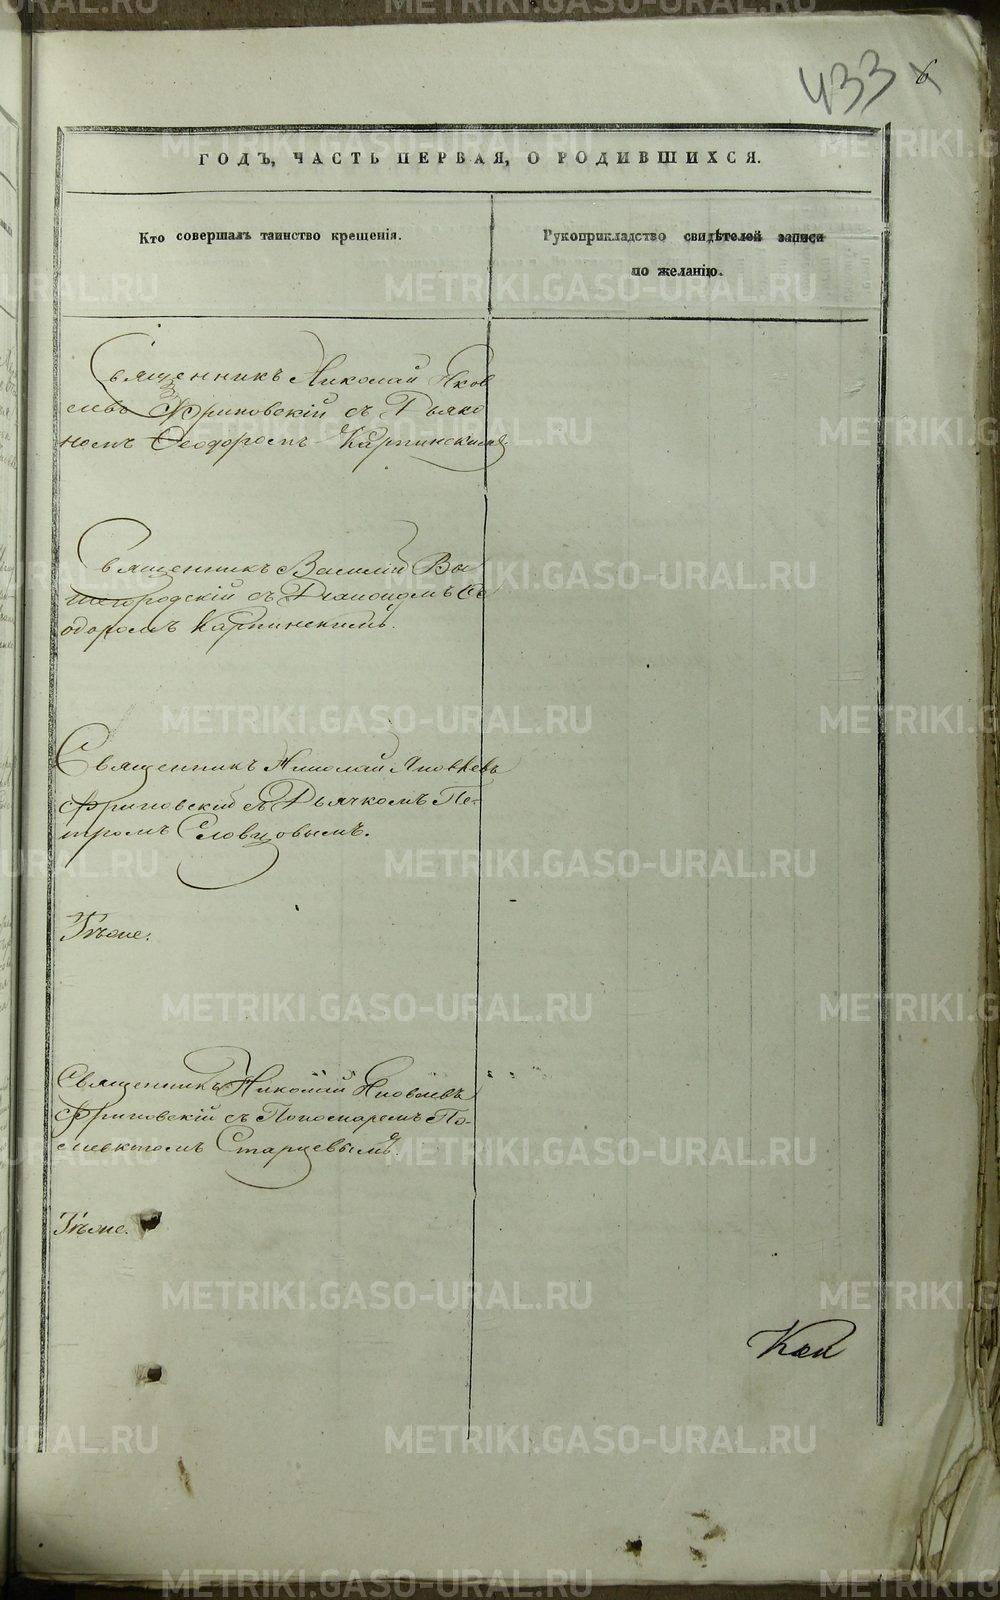 433 6
ГОДЪ, ЧАСТЬ ПЕРВАЯ, О РОДИВШИХСЯ.
Кто совершалъ таинство крещенія.
Рукоприкладство свидѣтелей записи
по желанію.
Священникъ Николай Яков
левъ Фриновскій съ Дьяко
номъ Ѳеодоромъ Карпинскимъ
Священникъ Василій Вы
шегородскій съ Діакономъ Ѳе
одоромъ Карпинскимъ.
Священникъ Николай Яковлевъ
Фриновскій съ Дьячкомъ Пе-
тромъ Словцовымъ.
Тѣже.
Священникъ Николай Яковлевъ
Фриновскій съ Пономаремъ По-
лиевктомъ Старцевымъ.
Тѣже.
METRIKI.GASO-URAL.RU